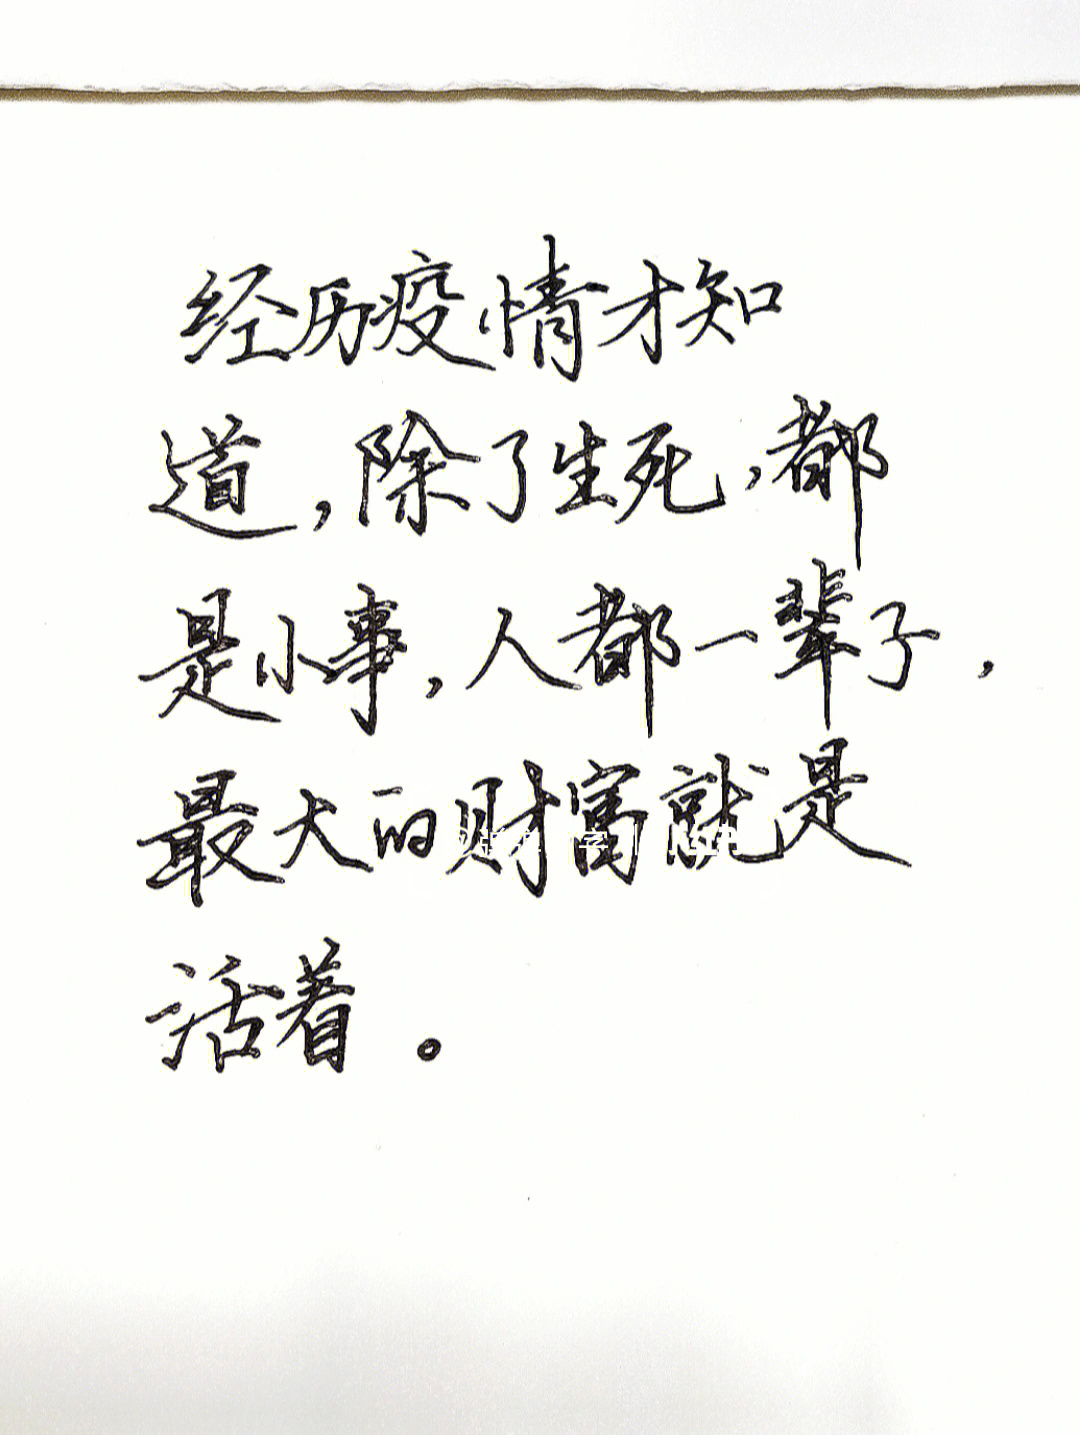 经历疫情才知
道，除了生死，都
是小事，人都一辈子，
最大的财富就是
活着。